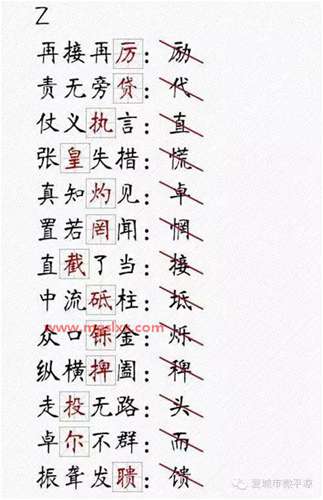 Z
再接再厉：励
责无旁贷：代
仗义执言：直
张皇失措：慌
真知灼见：卓
置若罔闻：惘
直截了当：接
中流砥柱：坻
众口铄金：烁
纵横捭阖：稗
走投无路：头
卓尔不群：而
振聋发聩：馈